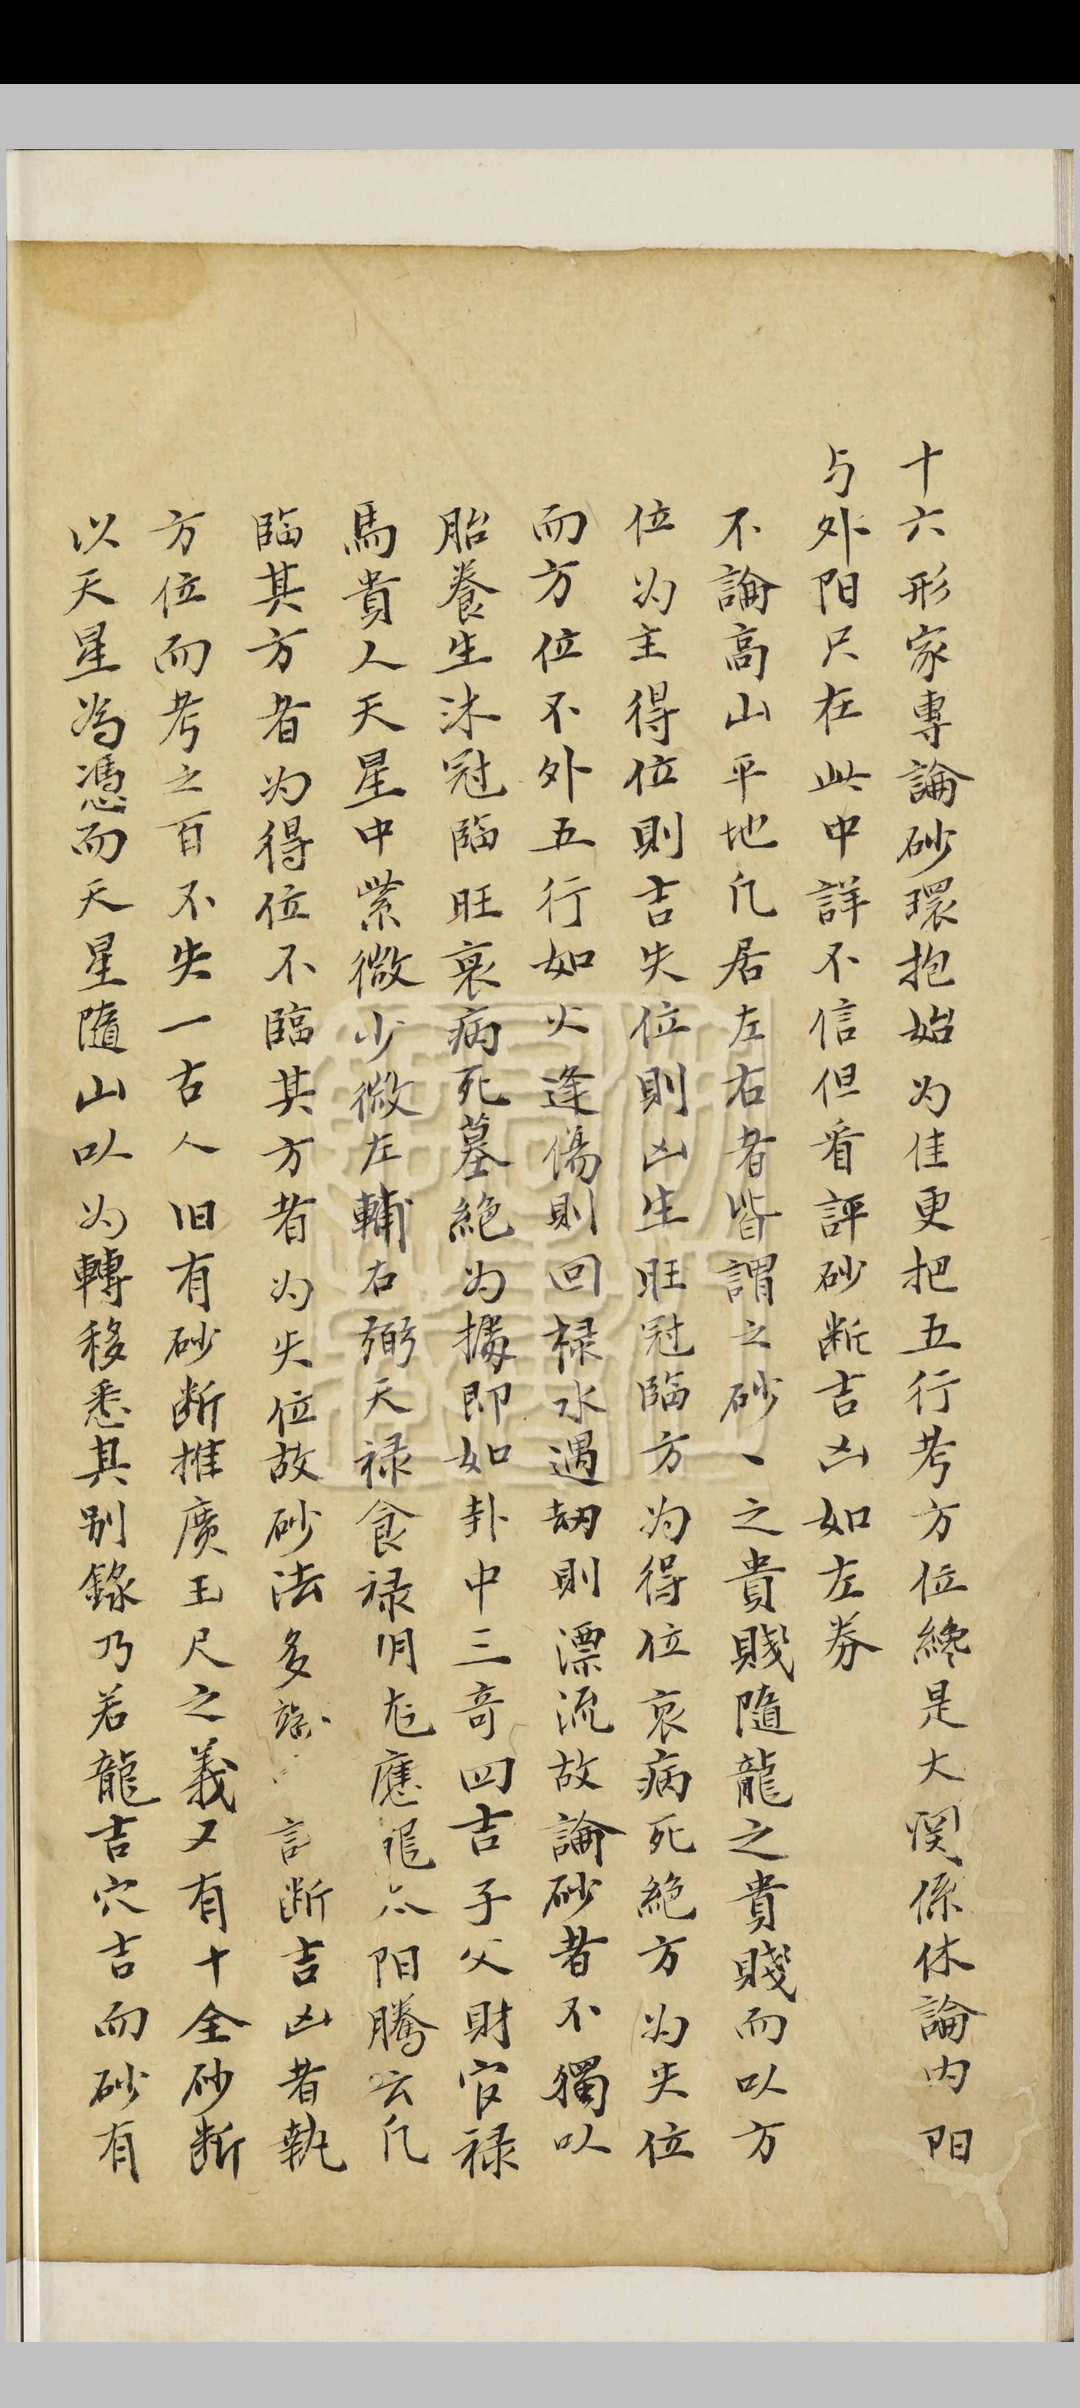 十六形家專論砂環抱始为佳更把五行考方位纔是大関係休論内阳
与外阳尺在此中詳不信但看評砂断吉凶如左券
不論高山平地凡居左右者皆謂之砂丶之貴賤隨龍之貴賤而以方
位为主得位則吉失位則凶生旺冠臨方为得位衰病死絶方为失位
而方位不外五行如火逢傷則回禄水遇劫則漂流故論砂者不獨以
胎養生沐冠臨旺衰病死墓絶为據即如卦中三奇四吉子父財官禄
馬貴人天星中紫微少微左輔右弼天禄食禄阳騰云凡
臨其方者为得位不臨其方者为失位故砂法多言断吉凶者執
方位而考之百不失一古人旧有砂断推廣玉尺之義又有十全砂断
以天星為憑而天星隨山以为轉移悉具别錄乃若龍吉穴吉而砂有